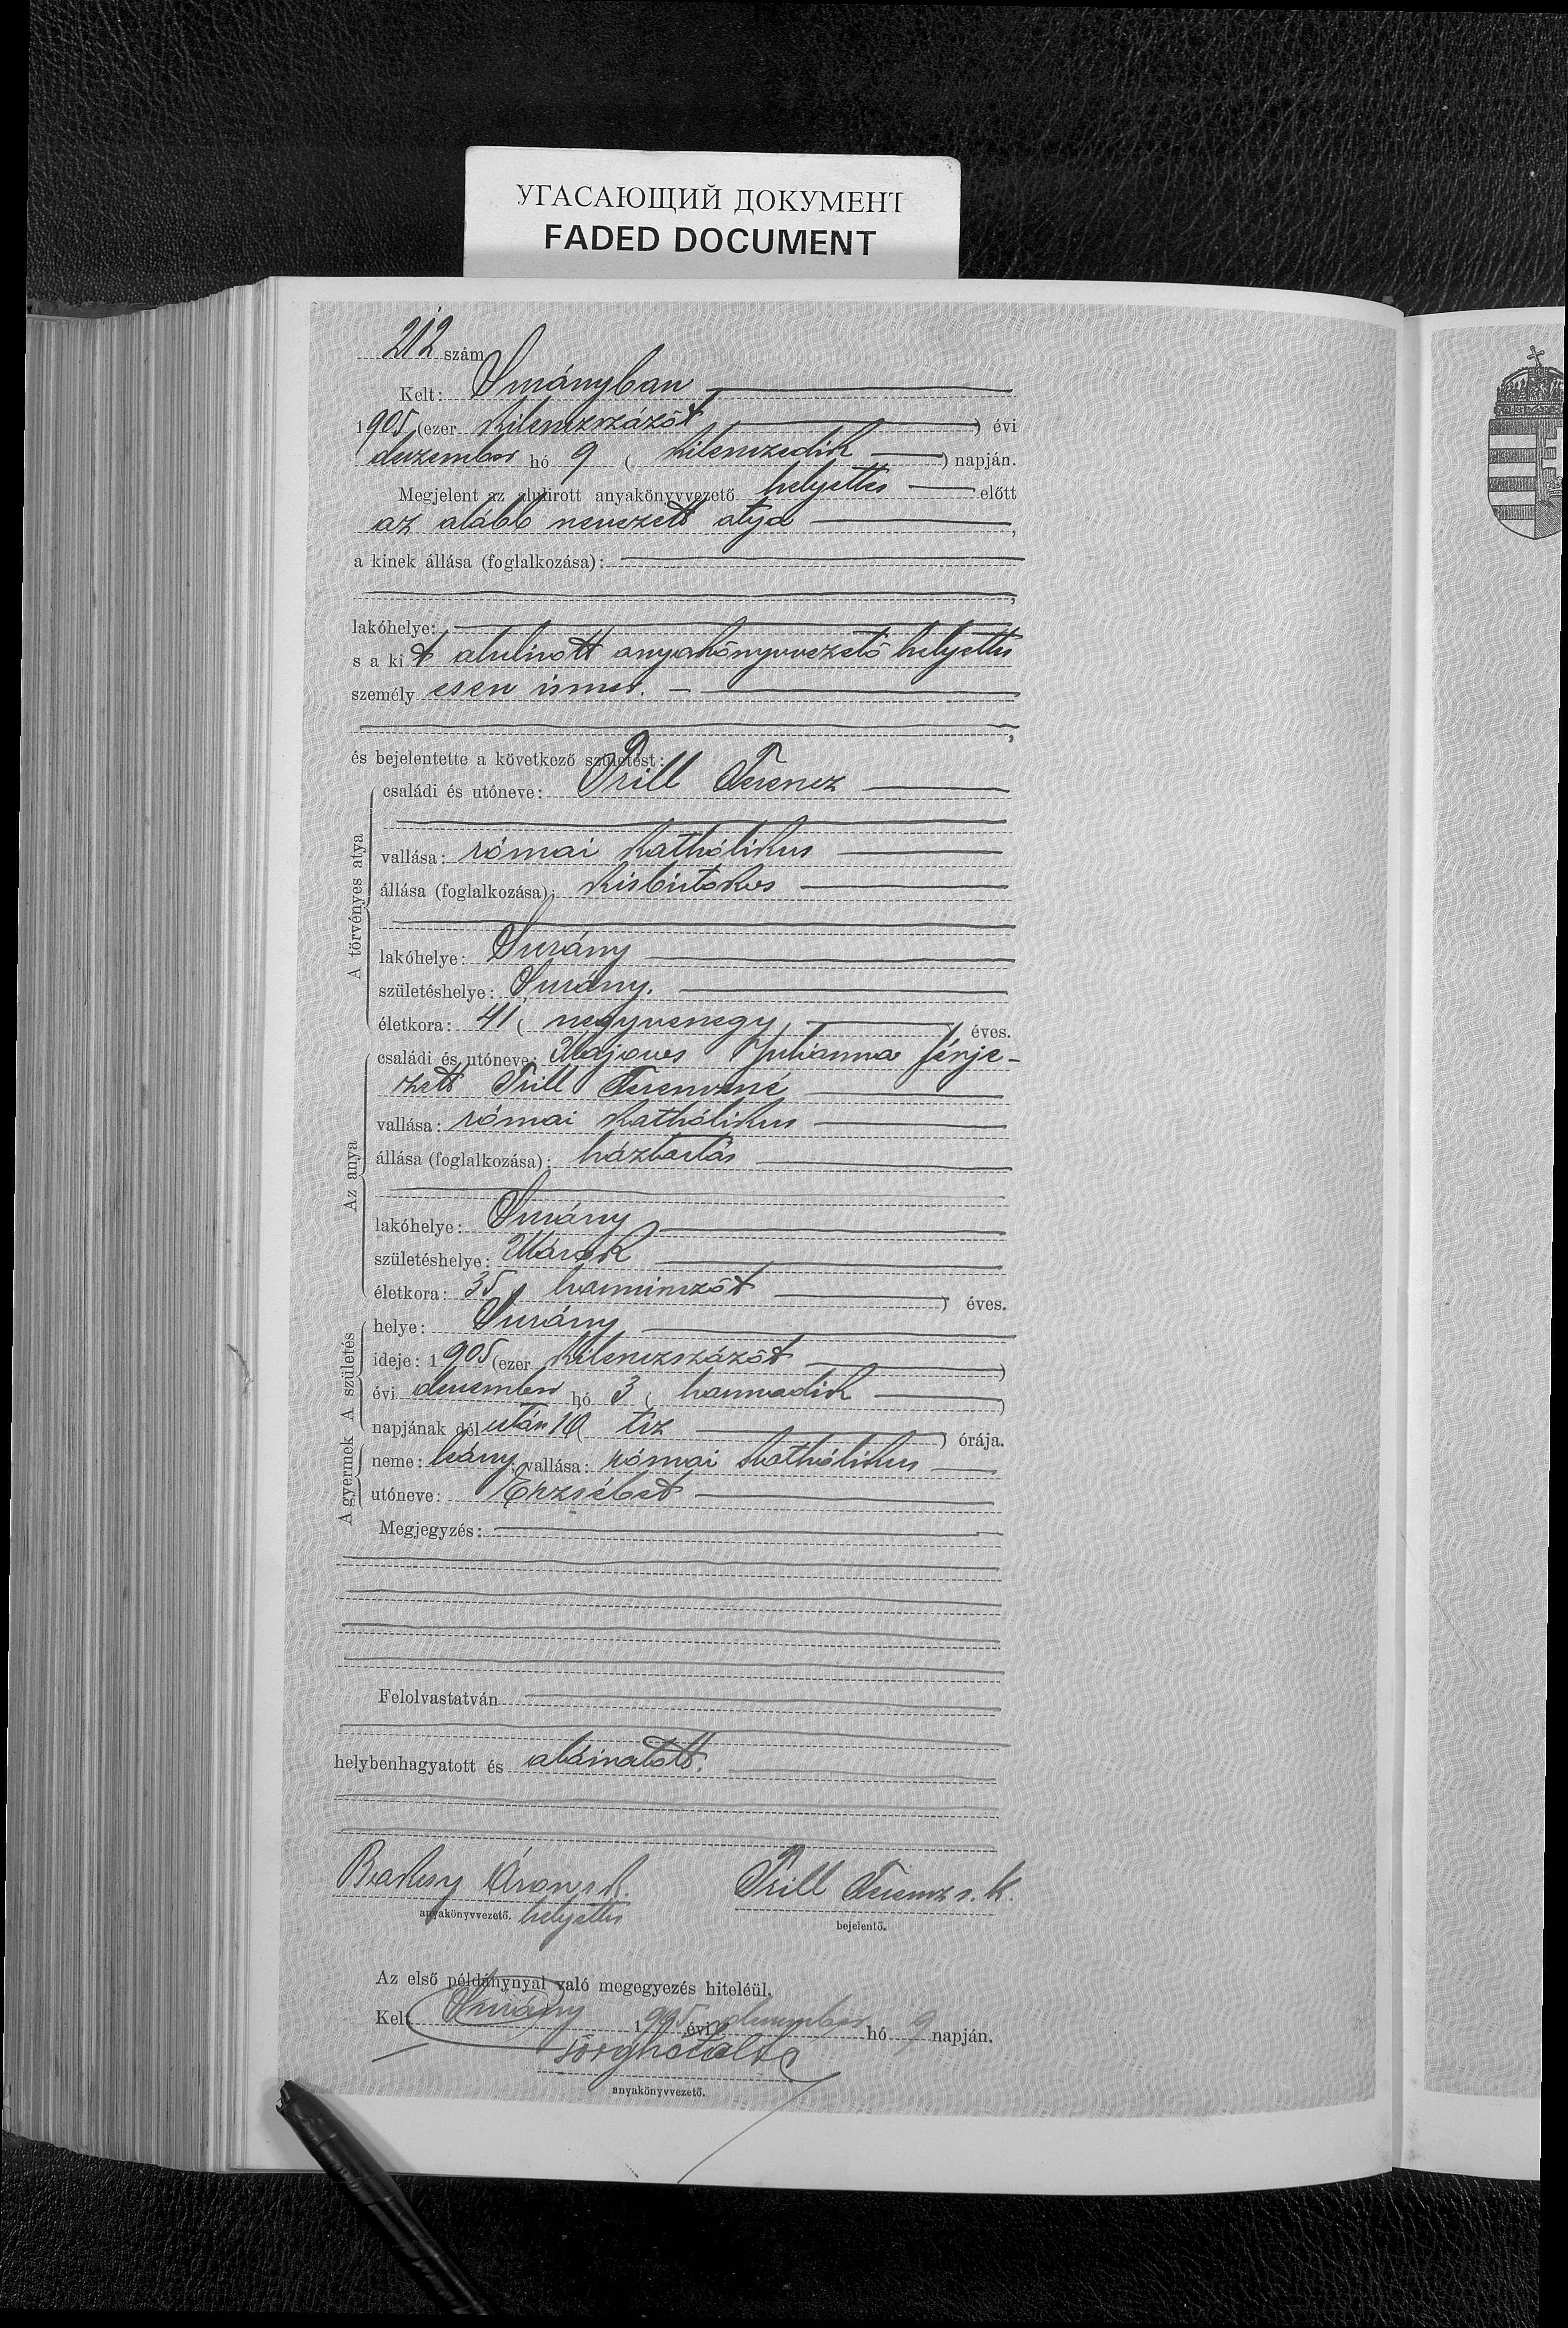 УГАСАЮЩИЙ ДОКУМЕНТ
FADED DOCUMENT
212 szám
Kelt: Surányban
1905 (ezer kilenczszázöt) évi
deczember hó 9 (kilenczedik) napján.
Megjelent az alulirott anyakönyvvezető helyettes előtt
az alább nevezett atya,
a kinek állása (foglalkozása):
lakóhelye:
s a kit alulirott anyakönyvvezető helyettes
személyesen ismer.
és bejelentette a következő születést:
A törvényes atya
családi és utóneve: Prill Ferencz
vallása: római kathólikus
állása (foglalkozása): kisbirtokos
lakóhelye: Surány
születéshelye: Surány.
életkora: 41 (negyvenegy) éves.
Az anya
családi és utóneve: Julianna férje-
zett Prill Ferenczné
vallása: római kathólikus
állása (foglalkozása): háztartás
lakóhelye: Surány
születéshelye: Marok
életkora: 35 (harminczöt) éves.
A születés
helye: Surány
ideje: 1905 (ezer kilenczszázöt)
évi deczember hó 3 (harmadik)
napjának délután 10 (tiz) órája.
A gyermek
neme: leány; vallása: római kathólikus
utóneve: Erzsébet
Megjegyzés:
Felolvastatván
helybenhagyatott és aláiratott.
Áron s. k. Prill Ferencz s. k.
anyakönyvvezető. helyettes bejelentő.
Az első példánynyal való megegyezés hiteléül.
Kelt Surány 1905 évi deczember hó 9 napján.
anyakönyvvezető.